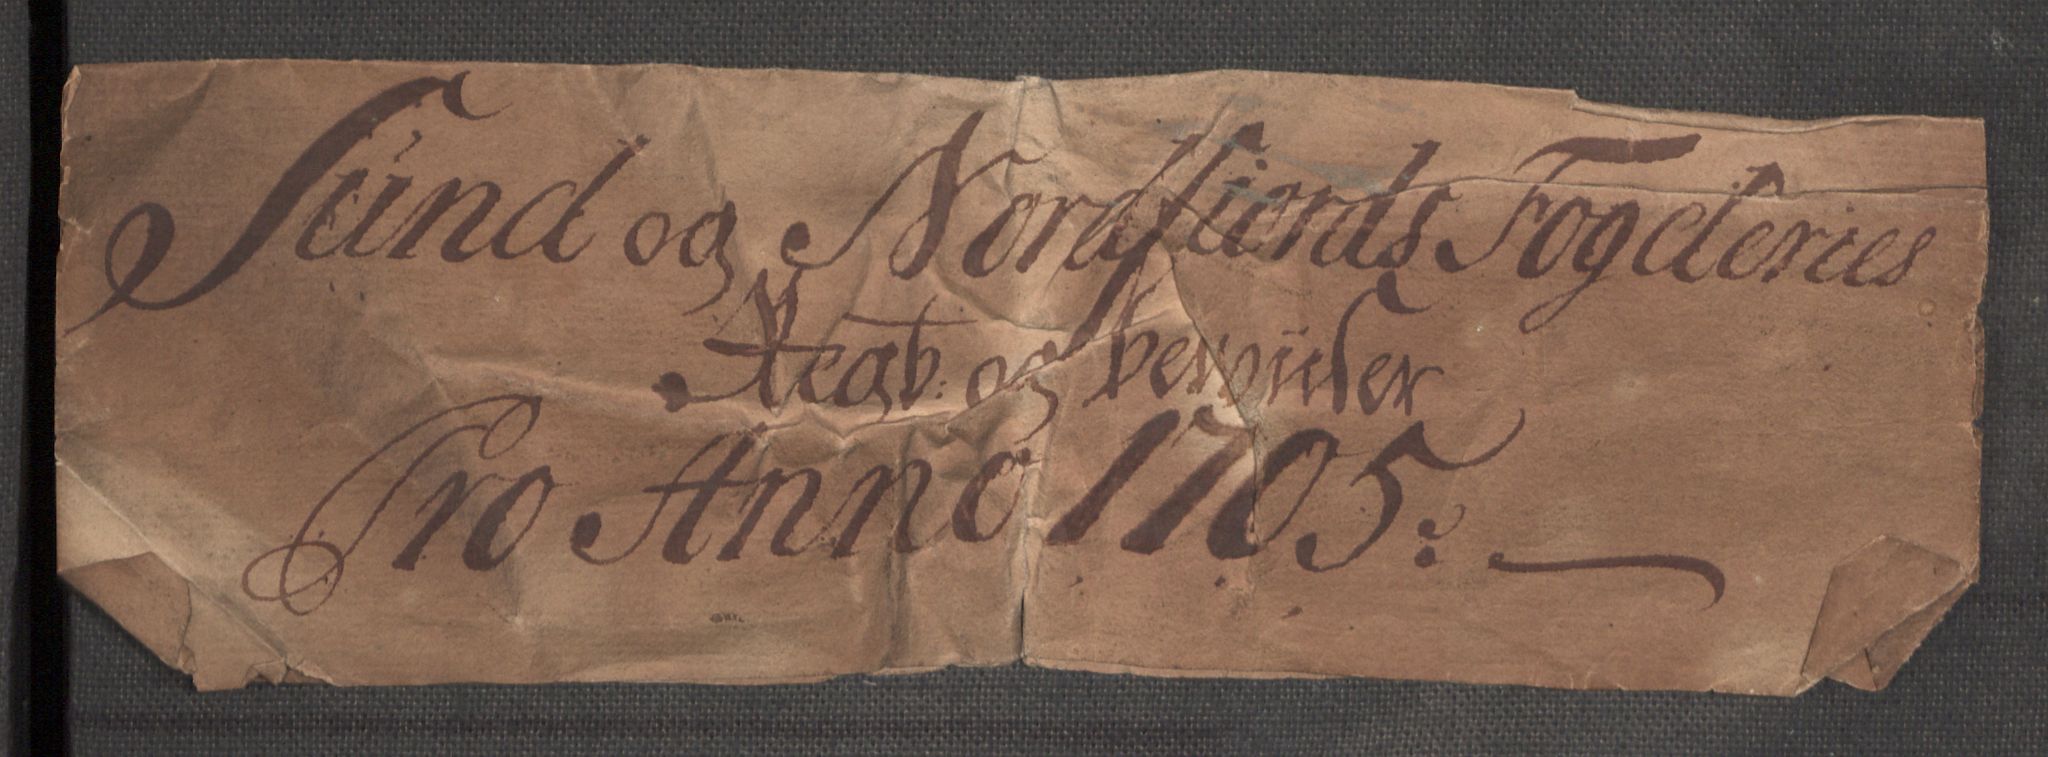 Sünd og Nordfiords Fogderies
Regb: og beviiser
Pro Anno 1705.